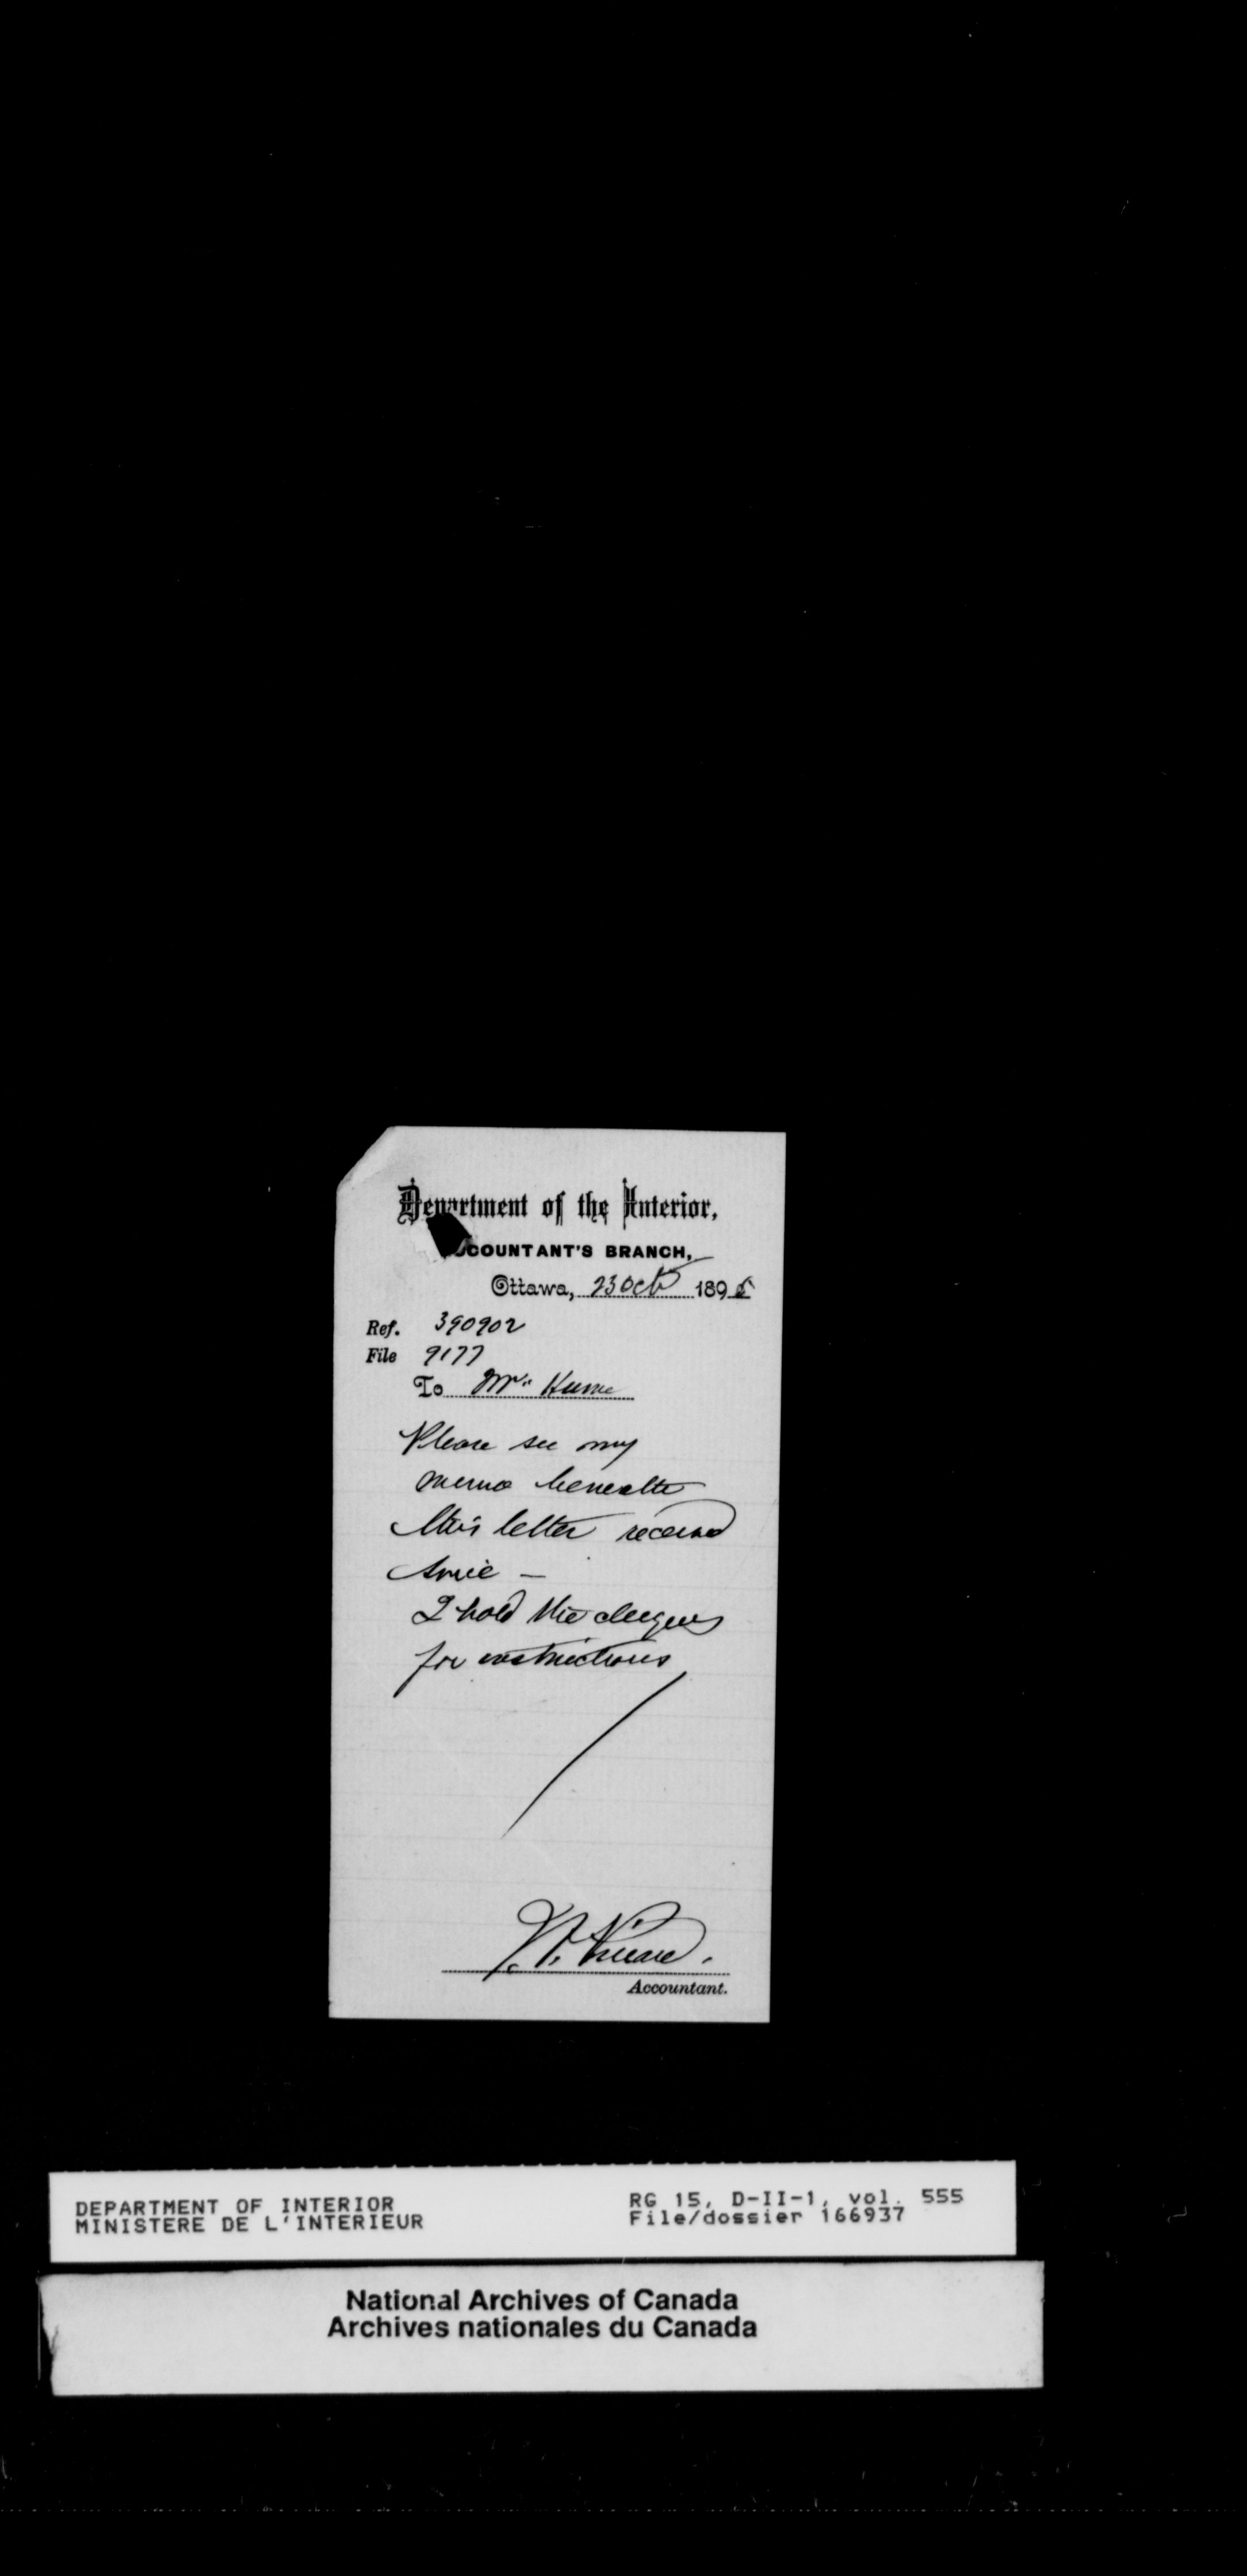 Department of the Interior,
ACCOUNTANT'S BRANCH,
Ottawa, 23 Oct 1895
Ref. 390902
File 9177
To Mr. Hume
Please see my
memo beneath
this letter received
since —
I hold the cheques
for instructions
Accountant.
DEPARTMENT OF INTERIOR
MINISTERE DE L'INTERIEUR
RG 15, D-II-1, vol. 555
File/dossier 166937
National Archives of Canada
Archives nationales du Canada